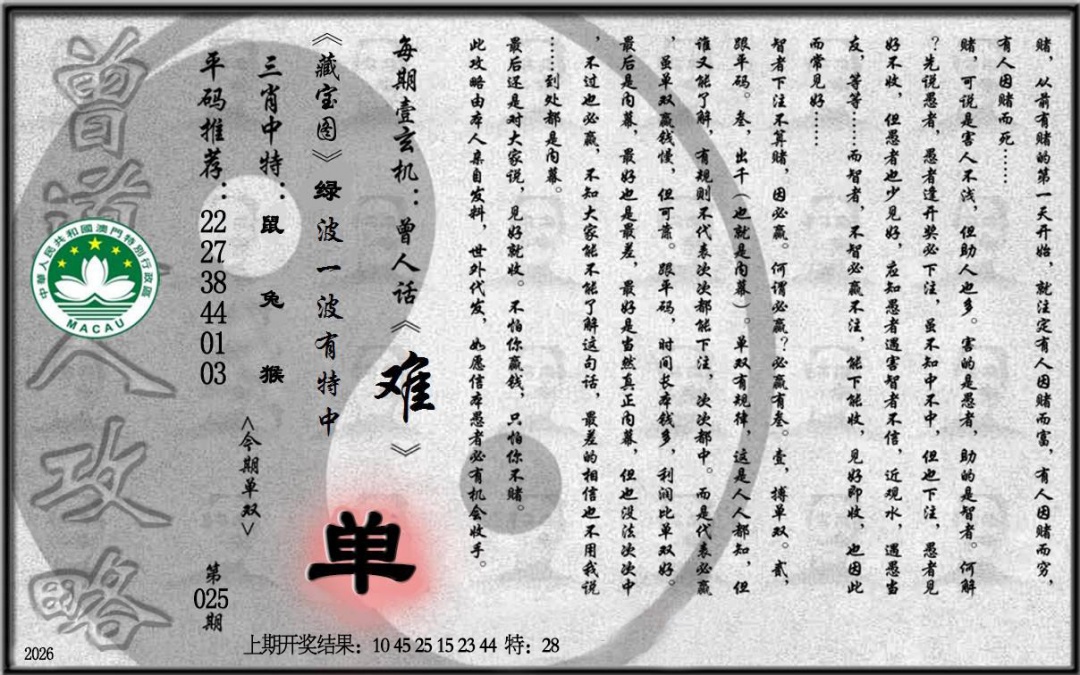 赌，从前有赌的第一天开始，就注定有人因赌而富，有人因赌而穷，
有人因赌而死……
赌，可说是害人不浅，但助人也多。害的是愚者，助的是智者。何解
？先说愚者，愚者逢开奖必下注，虽不知中不中，但也下注，愚者见
好不收，但愚者也少见好，应知愚者遇害智者不信，近观水，遇愚当
友，等等……而智者，不智必赢不注，能下能收，见好即收，也因此
而常见好……
智者下注不算赌，因必赢。何谓必赢？必赢有叁。壹，搏单双。贰，
跟平码。叁，出千（也就是内幕）。单双有规律，这是人人都知，但
谁又能了解，有规则不代表次次都能下注，次次都中。而是代表必赢
，虽单双赢钱慢，但可靠。跟平码，时间长本钱多，利润比单双好。
最后是内幕，最好也是最差，最好是当然真正内幕，但也没法次次中
，不过也必赢，不知大家能不能了解这句话，最差的相信也不用我说
……到处都是内幕。
最后还是对大家说，见好就收。不怕你赢钱，只怕你不赌。
此攻略由本人亲自发料，世外代发，如愿信本愚者必有机会收手。
每期壹玄机：曾人话《难》
《藏宝图》绿波一波有特中
单
三肖中特：鼠 兔 猴
<今期单双>
平码推荐：22 27 38 44 01 03
第025期
曾道人攻略
中華人民共和國澳門特別行政區
MACAU
上期开奖结果：10 45 25 15 23 44 特：28
2026